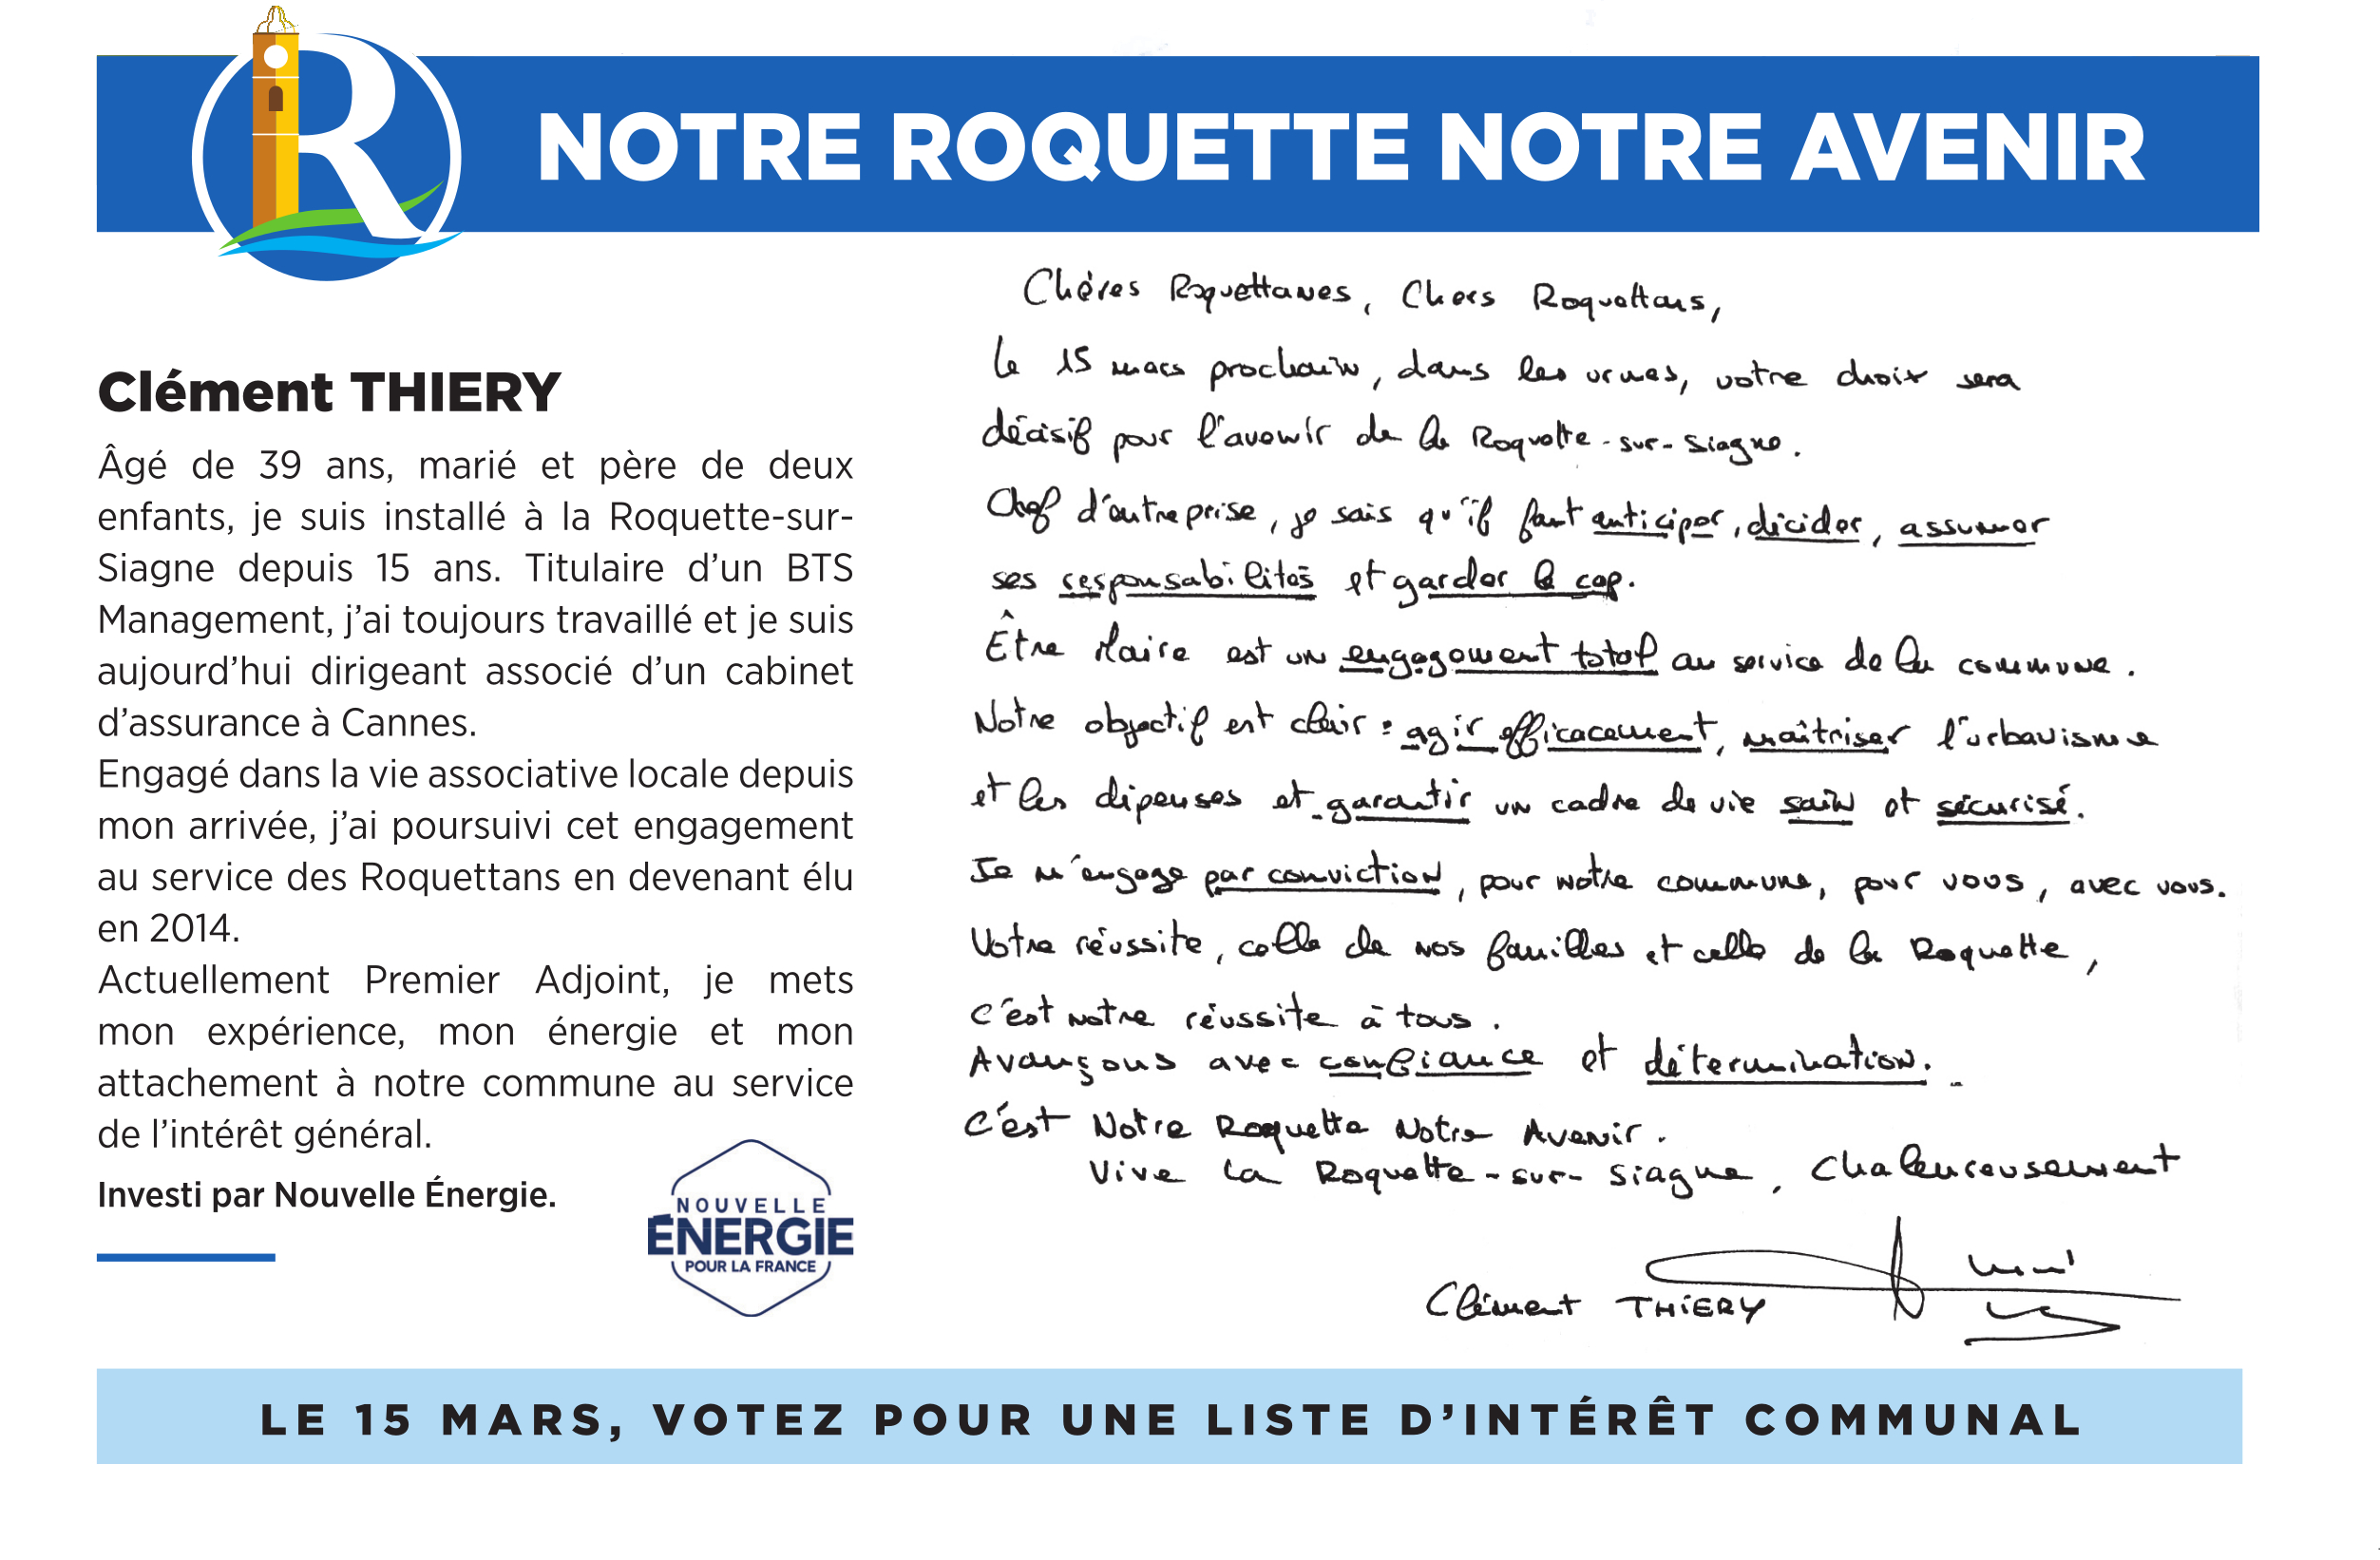 NOTRE ROQUETTE NOTRE AVENIR
Clément THIERY
Âgé de 39 ans, marié et père de deux
enfants, je suis installé à la Roquette-sur-
Siagne depuis 15 ans. Titulaire d’un BTS
Management, j’ai toujours travaillé et je suis
aujourd’hui dirigeant associé d’un cabinet
d’assurance à Cannes.
Engagé dans la vie associative locale depuis
mon arrivée, j’ai poursuivi cet engagement
au service des Roquettans en devenant élu
en 2014.
Actuellement Premier Adjoint, je mets
mon expérience, mon énergie et mon
attachement à notre commune au service
de l’intérêt général.
Investi par Nouvelle Énergie.
NOUVELLE
ÉNERGIE
POUR LA FRANCE
Chères Roquettanes, Chers Roquettans,
Le 15 mars prochain, dans les urnes, votre choix sera
décisif pour l'avenir de la Roquette-sur-Siagne.
Chef d'entreprise, je sais qu'il faut anticiper, décider, assumer
ses responsabilités et garder le cap.
Être Maire est un engagement total au service de la commune.
Notre objectif est clair : agir efficacement, maîtriser l'urbanisme
et les dépenses et garantir un cadre de vie sain et sécurisé.
Je m'engage par conviction, pour notre commune, pour vous, avec vous.
Votre réussite, celle de nos familles et celle de la Roquette,
c'est notre réussite à tous.
Avançons avec confiance et détermination.
C'est Notre Roquette Notre Avenir.
Vive La Roquette-sur-Siagne, Chaleureusement
Clément THIERY
LE 15 MARS, VOTEZ POUR UNE LISTE D’INTÉRÊT COMMUNAL